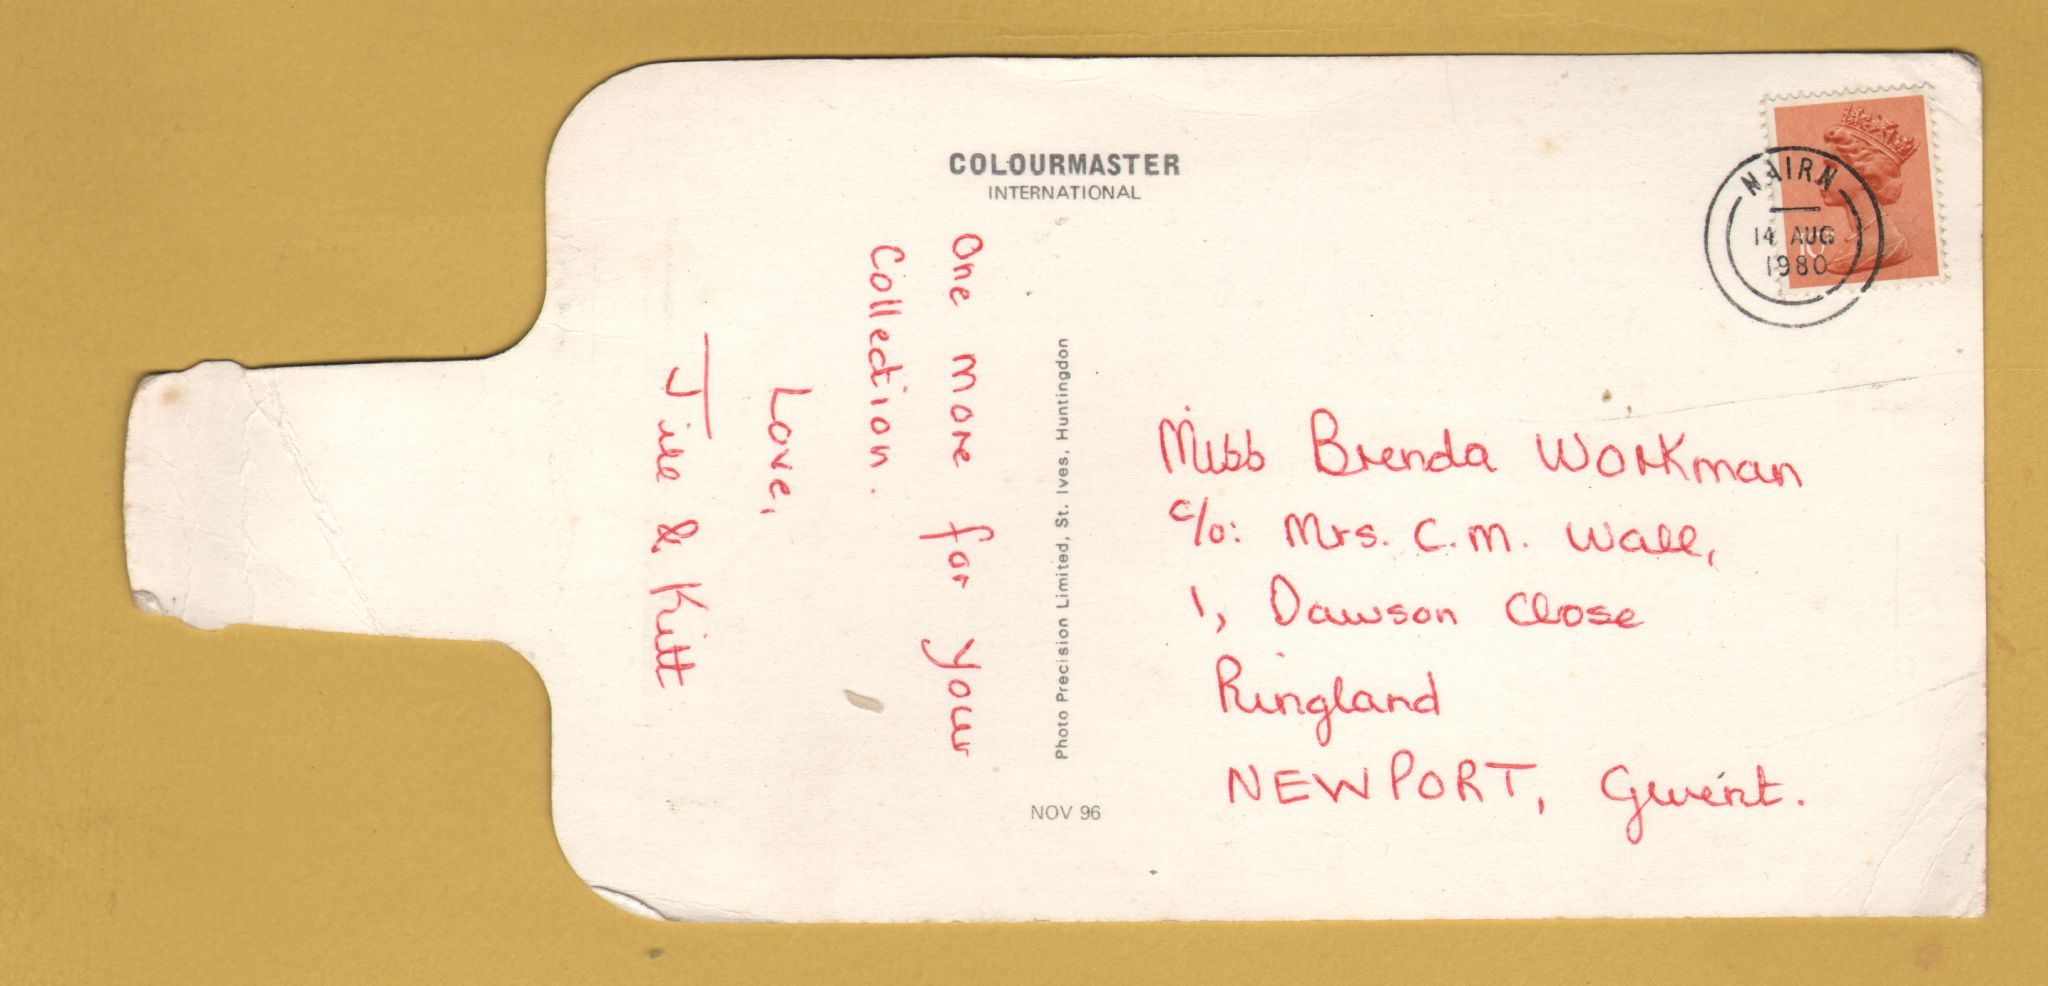 COLOURMASTER
INTERNATIONAL
One more for your
Collection.
Love,
Jill & Kitt
Photo Precision Limited, St. Ives, Huntingdon
NOV 96
NAIRN
14 AUG
1980
10
Miss Brenda Workman
c/o: Mrs. C.M. Wall,
1, Dawson Close
Ringland
NEWPORT, Gwent.